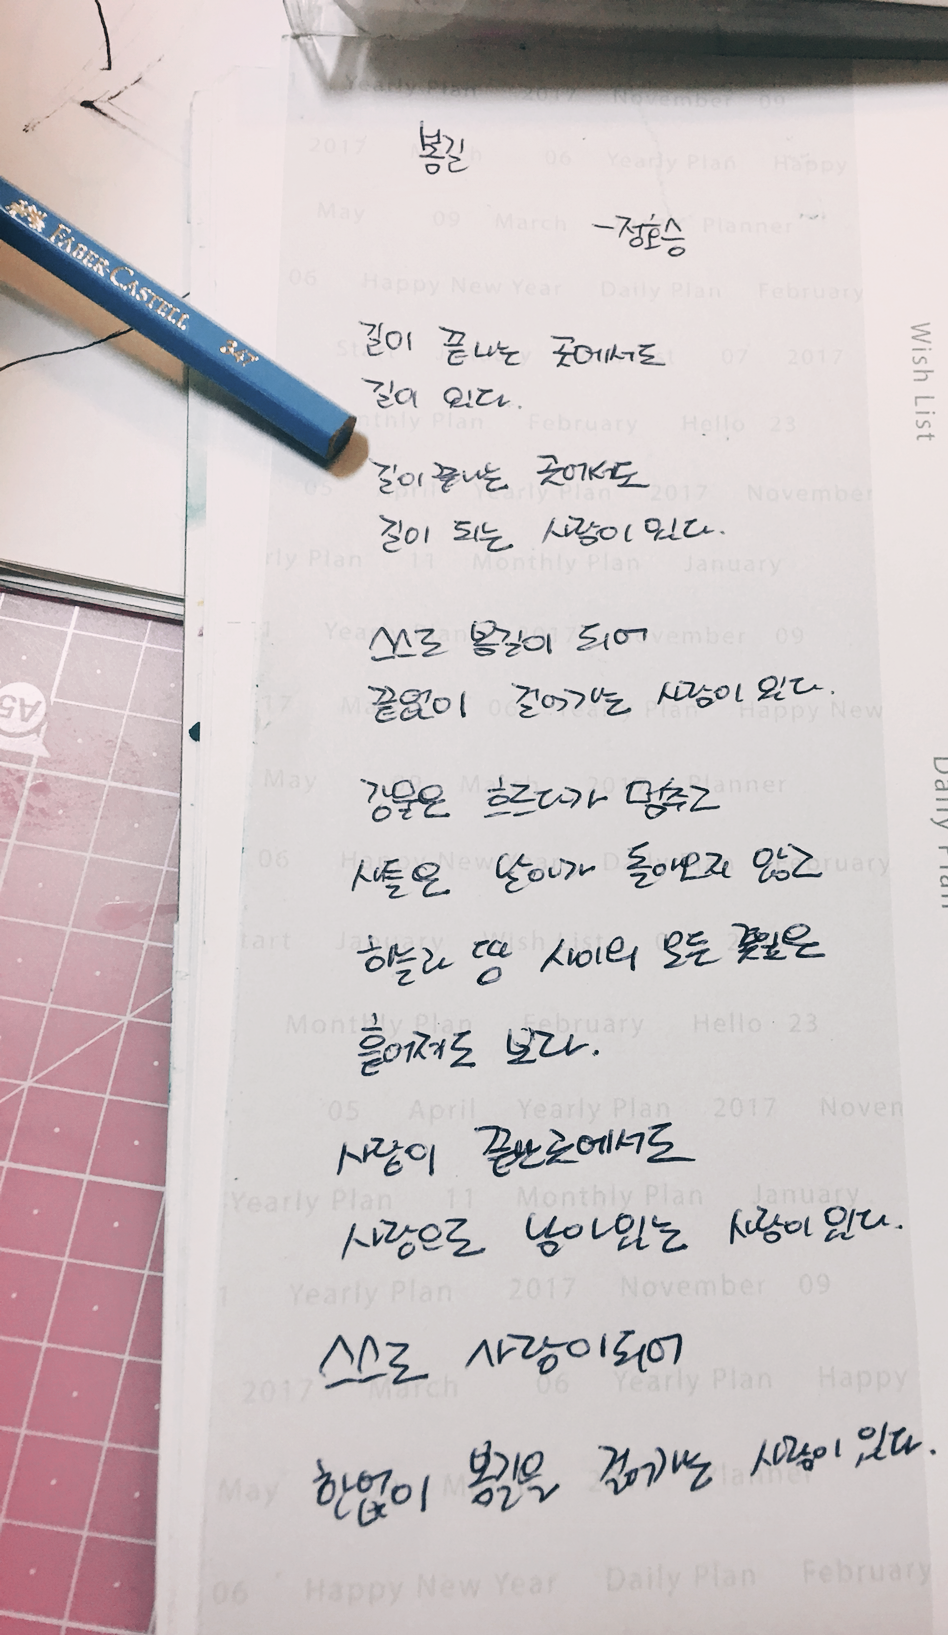 봄길
-정호승
길이 끝나는 곳에서도
길이 있다.
길이 끝나는 곳에서도
길이 되는 사람이 있다.
스스로 봄길이 되어
끝없이 걸어가는 사람이 있다.
강물은 흐르다가 멈추고
새들은 날아가 돌아오지 않고
하늘과 땅 사이의 모든 꽃잎은
흩어져도 보라.
사랑이 끝난 곳에서도
사랑으로 남아있는 사람이 있다.
스스로 사랑이 되어
한없이 봄길을 걸어가는 사람이 있다.
FABER-CASTELL 347
A5
Wish List
Daily Plan
Yearly Plan 2017 November 09
2017 06 Yearly Plan Happy
May 09 March Planner
06 Happy New Year Daily Plan February
07 2017
Monthly Plan February Hello 23
05 April Yearly Plan 2017 November
rly Plan 11 Monthly Plan January
1 November 09
17 06 Plan Happy New
May 09 March 2017 Planner
06 Happy New Year Daily Plan February
tart January Wish List
Monthly Plan February Hello 23
05 April Yearly Plan 2017 Noven
Yearly Plan 11 Monthly Plan January
1 Yearly Plan 2017 November 09
2017 March 06 Yearly Plan Happy
May Planner
06 Happy New Year Daily Plan February